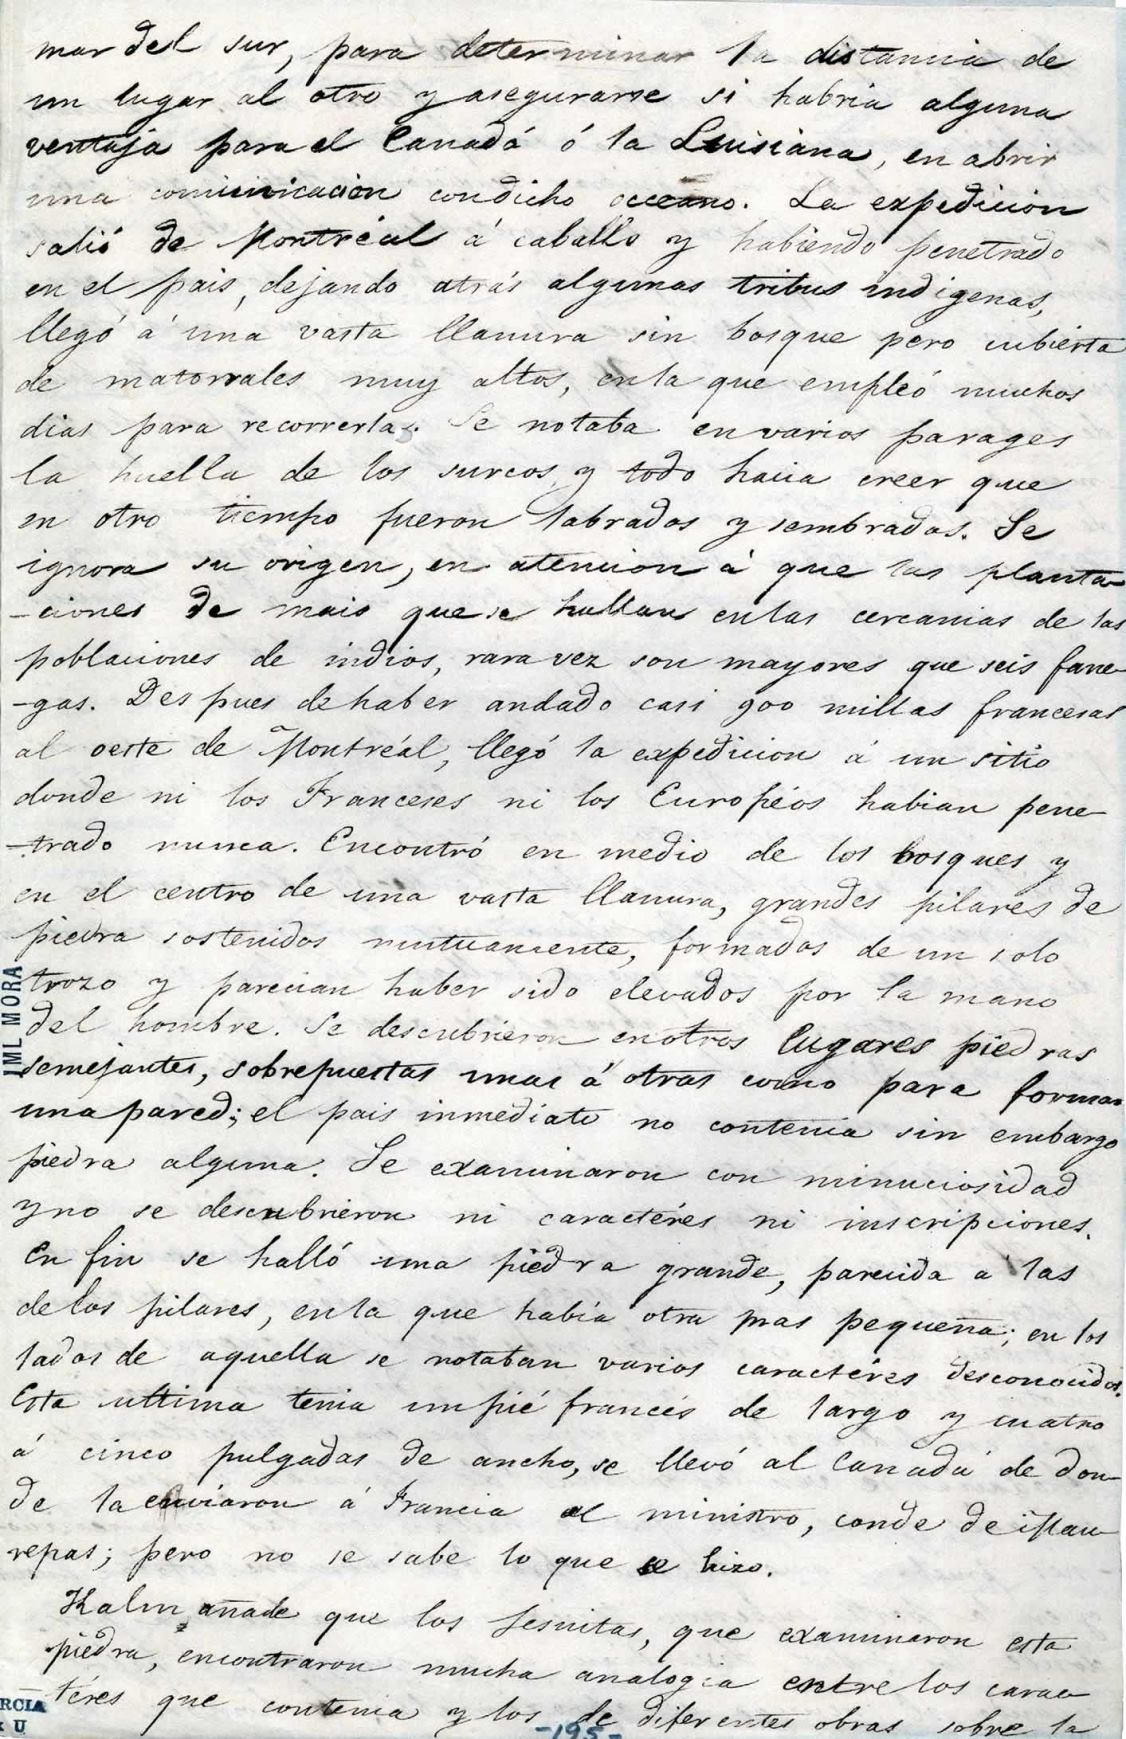 mar del sur, para determinar la distancia de
un lugar al otro y asegurarse si habria alguna
ventaja para el Canadá ó la Luisiana, en abrir
una comunicacion con dicho oceano. La expedicion
salió de Montréal á caballo y habiendo penetrado
en el pais, dejando atrás algunas tribus indigenas,
llegó á una vasta llanura sin bosque pero cubierta
de matorrales muy altos, en la que empleó muchos
dias para recorrerla. Se notaba en varios parages
la huella de los surcos, y todo hacia creer que
en otro tiempo fueron labrados y sembrados. Se
ignora su origen, en atencion á que las planta-
-ciones de mais que se hallan en las cercanias de las
poblaciones de indios, rara vez son mayores que seis fane-
-gas. Despues de haber andado casi 900 millas francesas
al oeste de Montréal, llegó la expedicion á un sitio
donde ni los Franceses ni los Européos habian pene-
-trado nunca. Encontró en medio de los bosques y
en el centro de una vasta llanura, grandes pilares de
piedra sostenidos mutuamente, formados de un solo
trozo y parecian haber sido elevados por la mano
del hombre. Se descubrieron en otros lugares piedras
semejantes, sobrepuestas unas á otras como para formar
una pared; el pais inmediato no contenia sin embargo
piedra alguna. Se examinaron con minuciosidad
y no se descubrieron ni caractéres ni inscripciones.
En fin se halló una piedra grande, parecida a las
de los pilares, en la que habia otra mas pequeña; en los
lados de aquella se notaban varios caractéres desconocidos.
Esta ultima tenia un pié francés de largo y cuatro
á cinco pulgadas de ancho, se llevó al Canadá de don-
de la enviaron á Francia al ministro, conde de Mau-
repas; pero no se sabe lo que se hizo.
Kalm añade que los Jesuitas, que examinaron esta
piedra, encontraron mucha analogia entre los carac-
téres que contenia y los de diferentes obras sobre la
-195-
IML MORA
RCIA
U